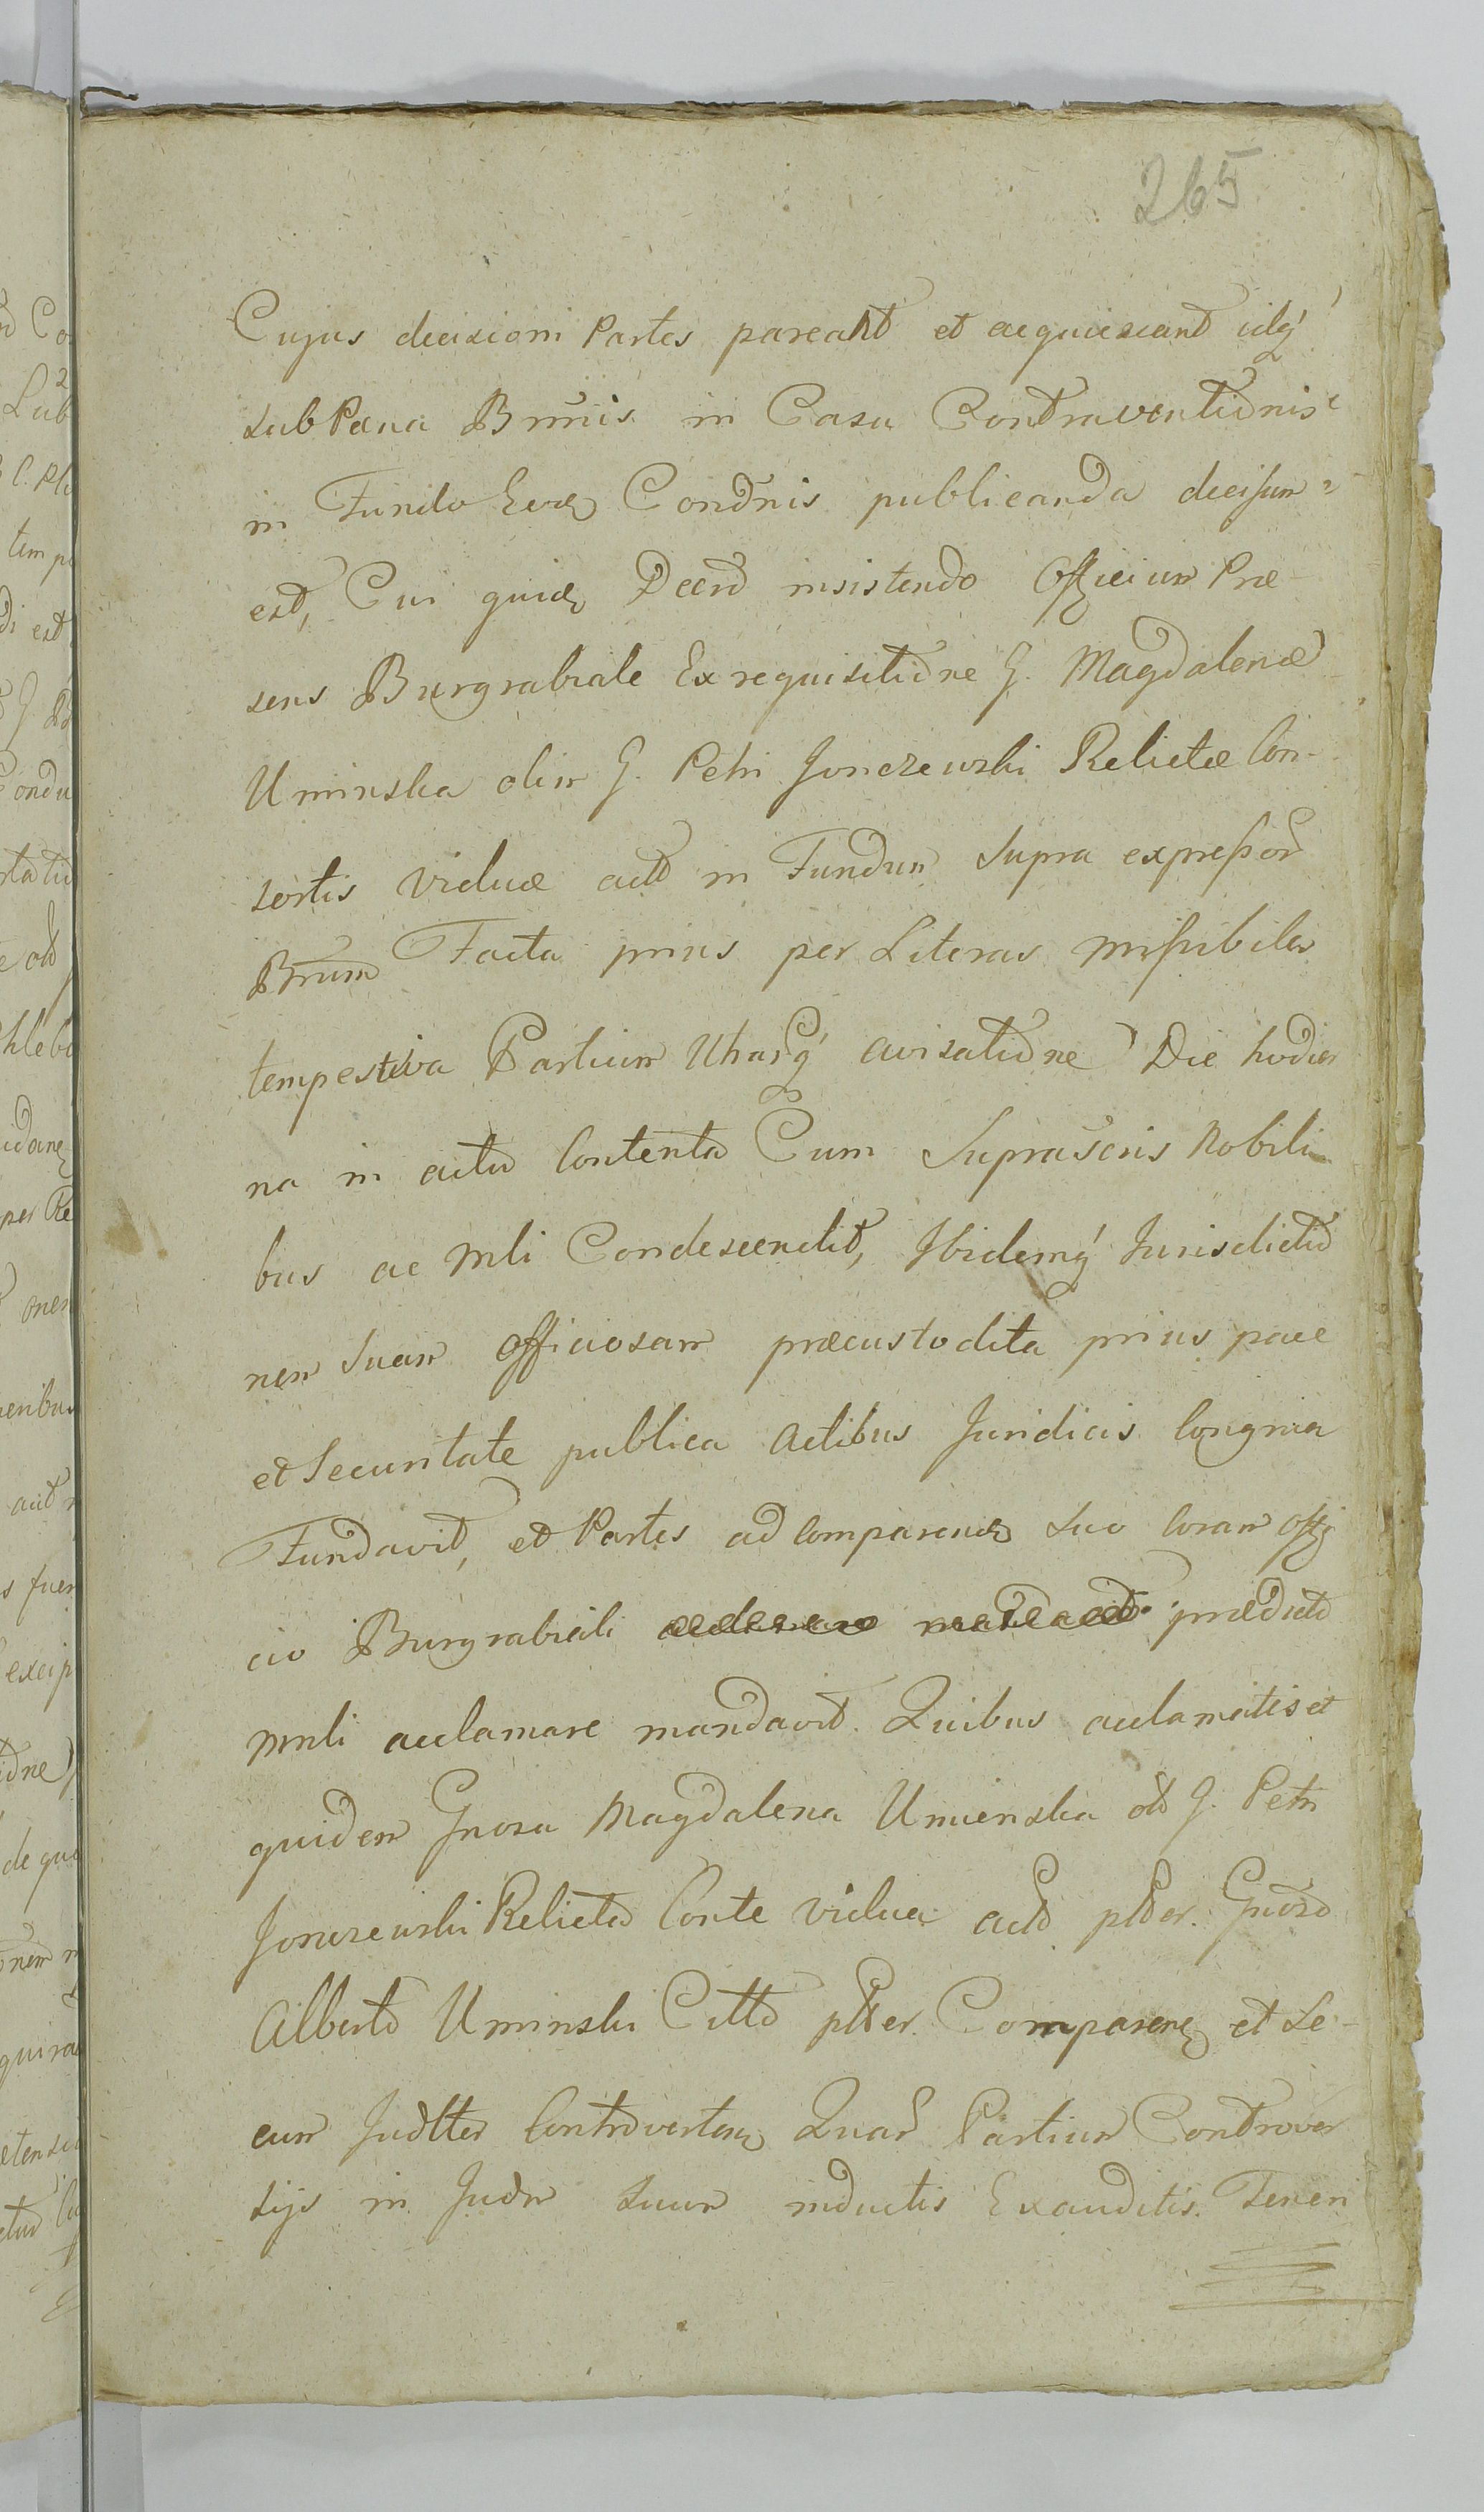 265
Cujus decisioni Partes pareant et acquiescant idq́
sub Pæna Bnnis in Casu Contraventiõnis
in Fundo Condñis publicanda decisum
est, Cui quidem Decrõ insistendo Officium Præ-
sens Burgrabiale Ex requisitiõne G. Magdalenæ
Uminska olim G. Petri Jonczewski Relictæ Con-
sortis viduæ actõ in Fundum supra expressor
Bnrum Facta prius per Literas missibiles
tempestiva Partium Utrarq́ avisatiõne Die hodier
na in actu Contenta Cum Suprascris Nobili
bus ac Mli Condescendit, Ibidemq́ Jurisdictiõ
nem Suam Officiosam præcustodita prius pace
et Securitate publica Actibus Juridicis Congrua
Fundavit, et Partes ad comparend suo coram offi
cio Burgrabiali prædictõ
mnli acclamare mandavit. Quibus acclamatis et
quidem Gnosa Magdalena Umienska ol G. Petri
Jonczewski Relicta Conte vidua actõ plter. Gnosõ
Alberto Uminski Cittõ plter. Comparen et Se-
cum Judlter Controverten Quar Partium Controver
sijs in Judm suum inductis Exauditis. Teneri